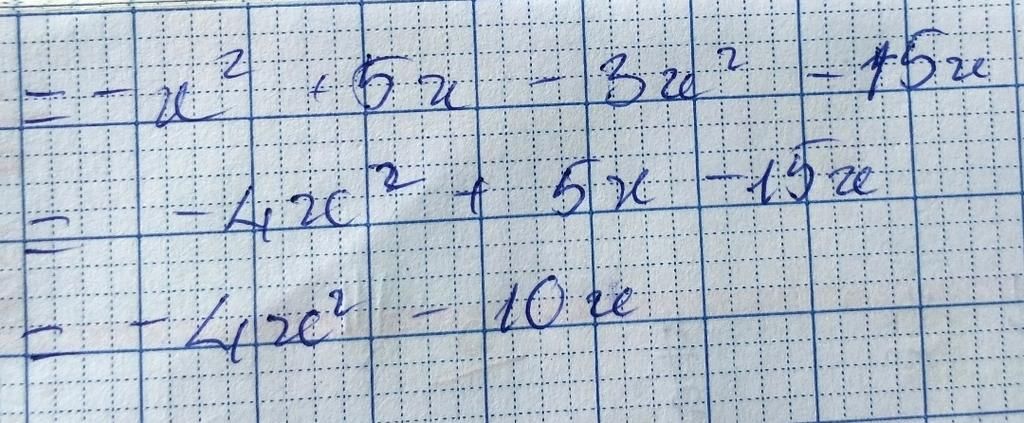 = - x² + 5x - 3x² - 15x
= - 4x² + 5x - 15x
= - 4x² - 10x